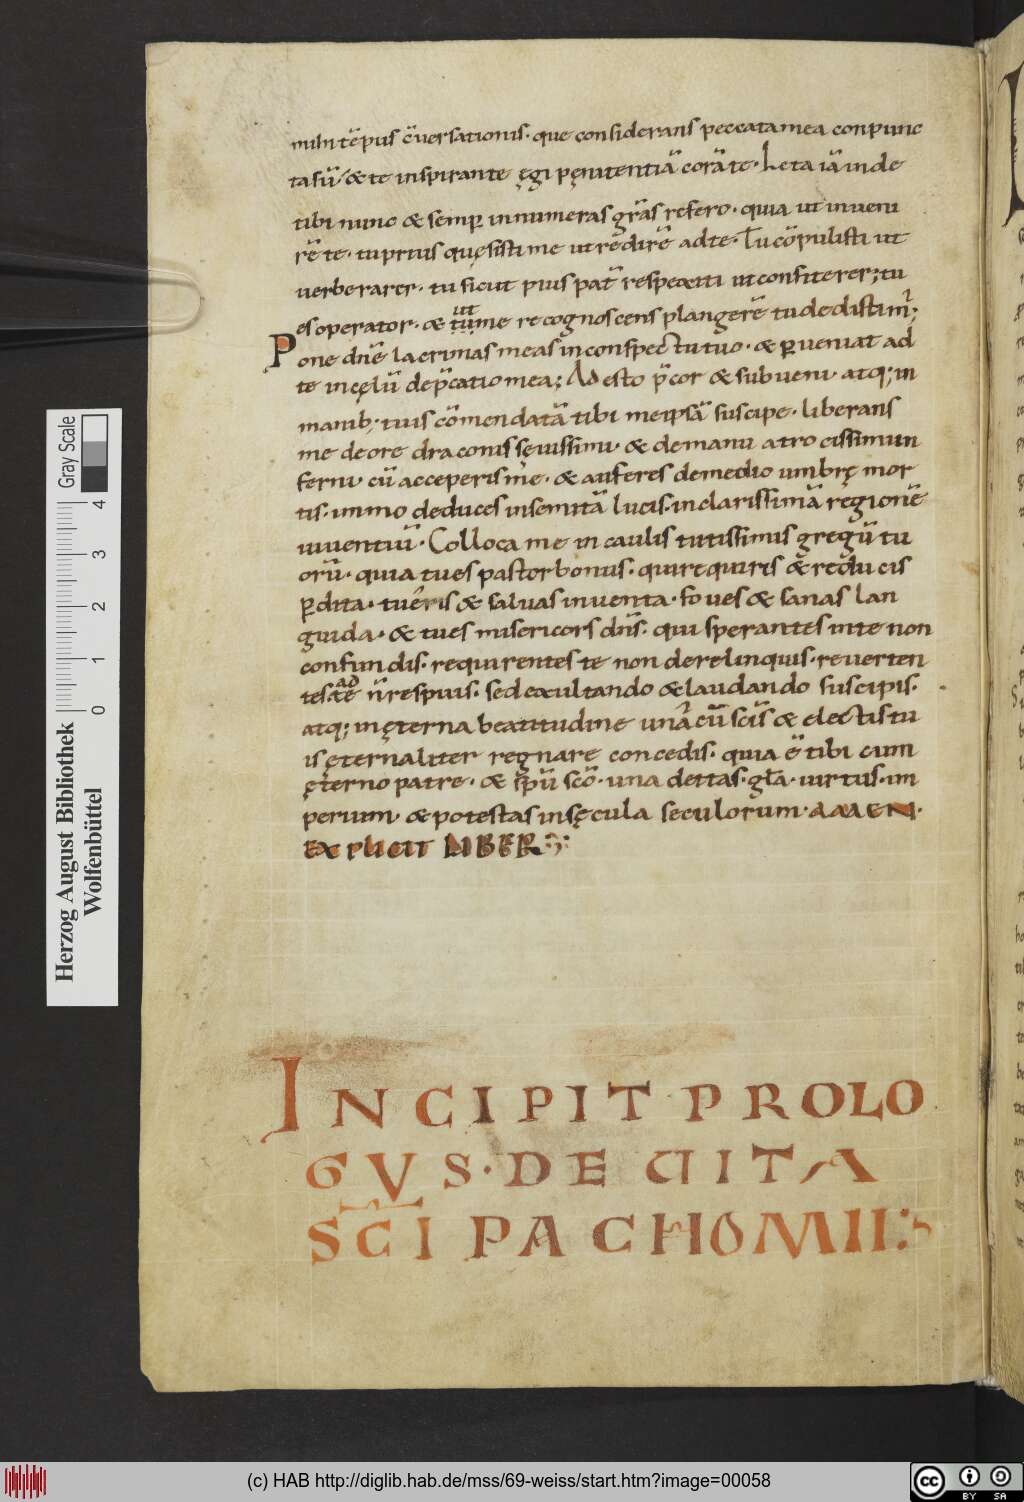 mihi tēpus c̄uersationis· que considerans peccata mea conpunc
ta sū· & te inspirante ęgi pęnitentiā corā te· Leta iā inde
tibi nunc & semꝑ innumeras gr̄as refero· quia ut inueni
rē te· tu prius quęsisti me ut redirē ad te· Tu cōpulisti ut
uerberarer· tu sicut pius pat̄ respexisti ut confiterer; tu
es operator· & ut tū me recognoscens plangerē tu dedisti m̄;
Pone dn̄e lacrimas meas in conspectu tuo· & ꝑueniat ad
te in cęlū dep̄catio mea; Adesto p̄cor & subueni· atq; in
manib; tuis cōmendatā tibi meipsā suscipe· liberans
me de ore draconis sęuissimi· & de manu atrocissimi in
ferni· cū acceperis me· & auferes de medio umbrę mor
tis· immo deduces in semitā lucis· in clarissimā regionē
uiuentiū· Colloca me in caulis tutissimis gregū tu
orū· quia tu es pastor bonus· qui requiris & reducis
ꝑdita· tueris & saluas inuenta· foues & sanas lan
guida· & tu es misericors dn̄s· qui sperantes in te non
confundis· requirentes te non derelinquis· reuerten
tes· ad te n̄ respuis· sed exultando & laudando suscipis·
atq; in ęterna beatitudine unā cū sc̄is & electis tu
is ęternaliter regnare concedis· quia ē tibi cum
ęterno patre· & sp̄u sc̄o· una deitas· gl̄a· uirtus· im
perium· & potestas in sęcula seculorum· AMEN·
Explicit LIBER
INCIPIT PROLO
GUS· DE UITA
SC̄I PACHOMII
Gray Scale
0 1 2 3 4
Herzog August Bibliothek
Wolfenbüttel
(c) HAB http://diglib.hab.de/mss/69-weiss/start.htm?image=00058
cc BY SA